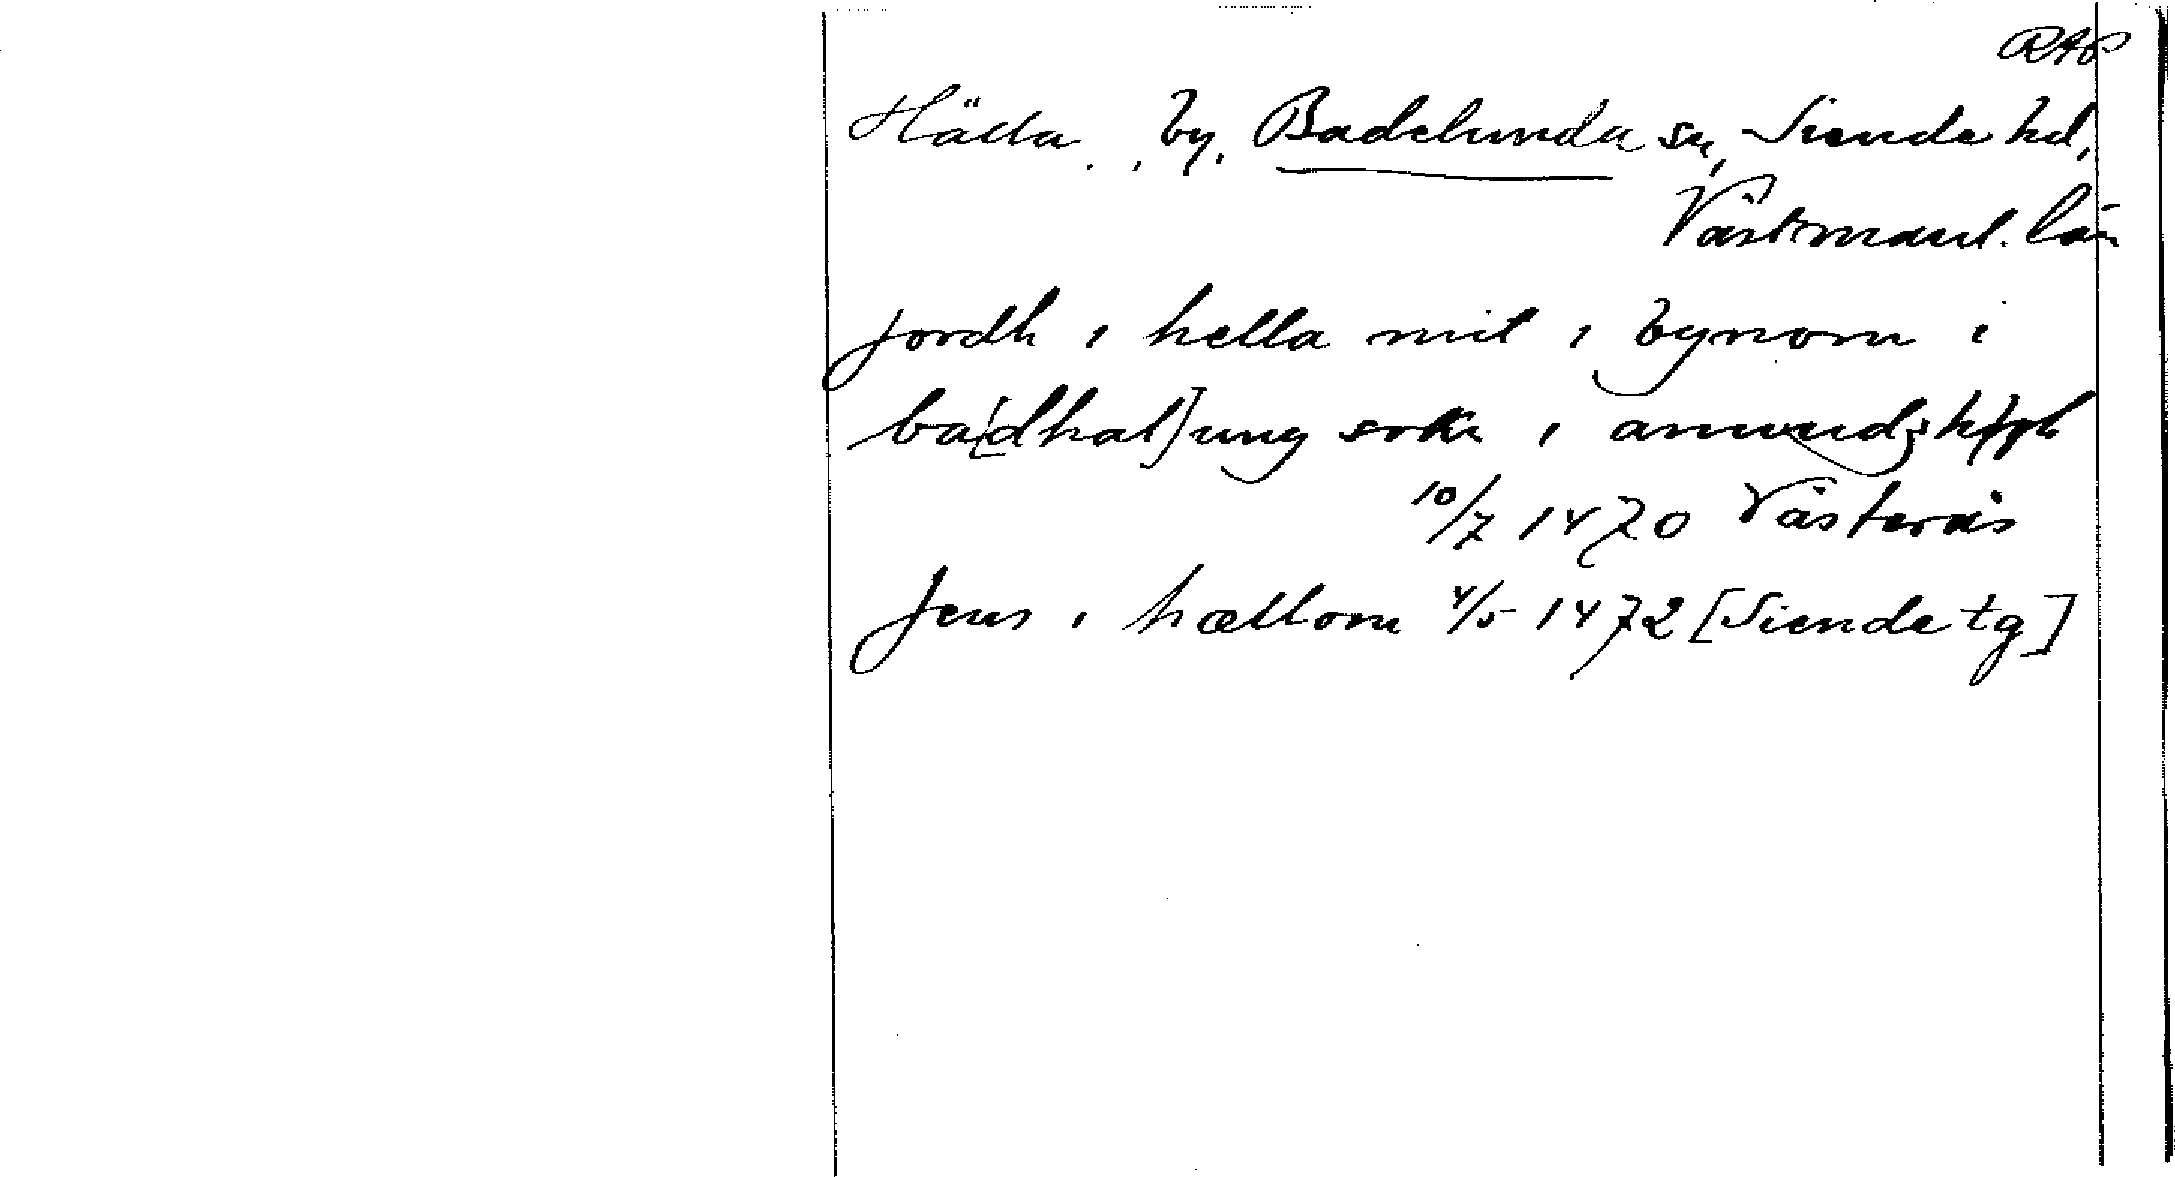 RAP
Hälla, by, Badelunda sn, Siende hd,
Västmanl. län
jordh i hella mit i bynom i
ba[dhal]ung sokn i
10/7 1470 Västerås
Jens i hællom 4/5 1472 [Siende tg]